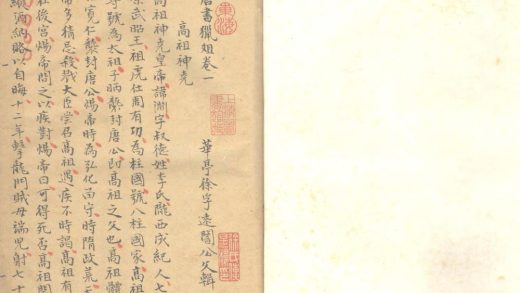 唐書獵俎卷一
華亭徐孚遠闇公父輯
高祖神堯
高祖神堯皇帝諱淵字叔德姓李氏隴西成紀人七
武昭王祖虎仕周有功為柱國號八柱國家高
尊號為太祖子昞襲封唐公即高祖之父也高祖體
寬仁襲封唐公煬帝時為弘化留守時隋政荒天
帝多猜忌殺戮大臣嘗召高祖遇疾不時謁高祖有
在後宮煬帝問之以疾對煬帝曰可得死否高祖聞
縱酒納賂以自晦十二年擊龍門賊母端兒射七十